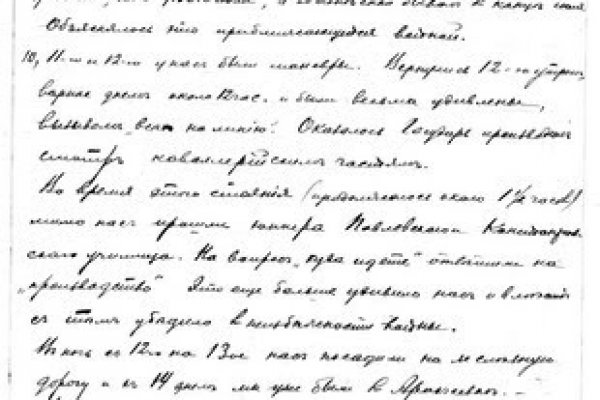 Объяснялось это приближающейся войной.
10, 11-го и 12-го у нас были маневры. Вернулись 12-го утром,
вернее днем около 12 час. и были весьма удивлены,
вызовом „всех на линию". Оказалось Государь производил
смотр кавалерийским частям.
Во время этого стояния (продолжалось около 1½ часов)
мимо нас прошли юнкера Павловского
училища. На вопрос „куда идете" отвечали на
„производство" Это еще больше удивило нас и
с тем убедило в неизбежности войны.
В ночь с 12-го на 13-ое нас посадили на железную
дорогу и к 14 днем мы уже были в